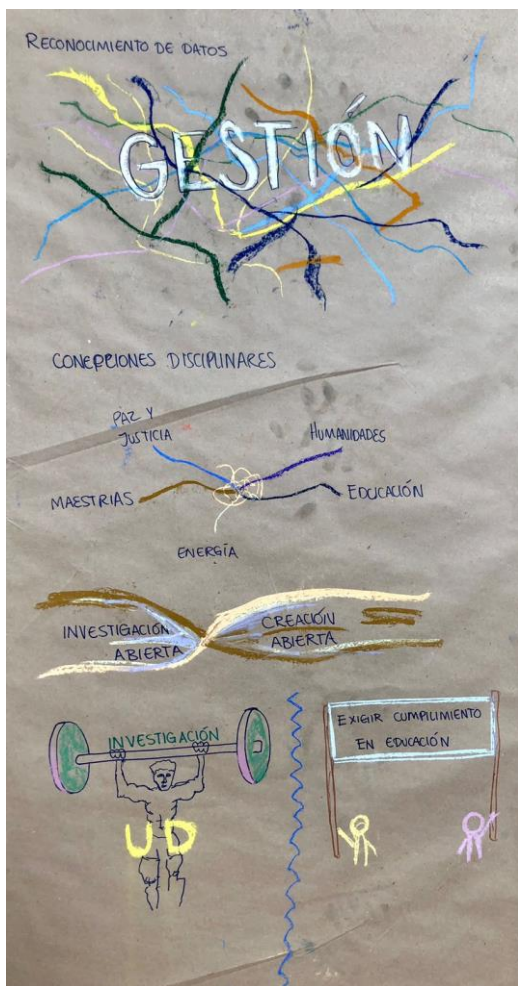 RECONOCIMIENTO DE DATOS
GESTIÓN
CONCEPCIONES DISCIPLINARES
PAZ Y
JUSTICIA
HUMANIDADES
MAESTRIAS
EDUCACIÓN
ENERGÍA
INVESTIGACIÓN
ABIERTA
CREACIÓN
ABIERTA
INVESTIGACIÓN
UD
EXIGIR CUMPLIMIENTO
EN EDUCACIÓN